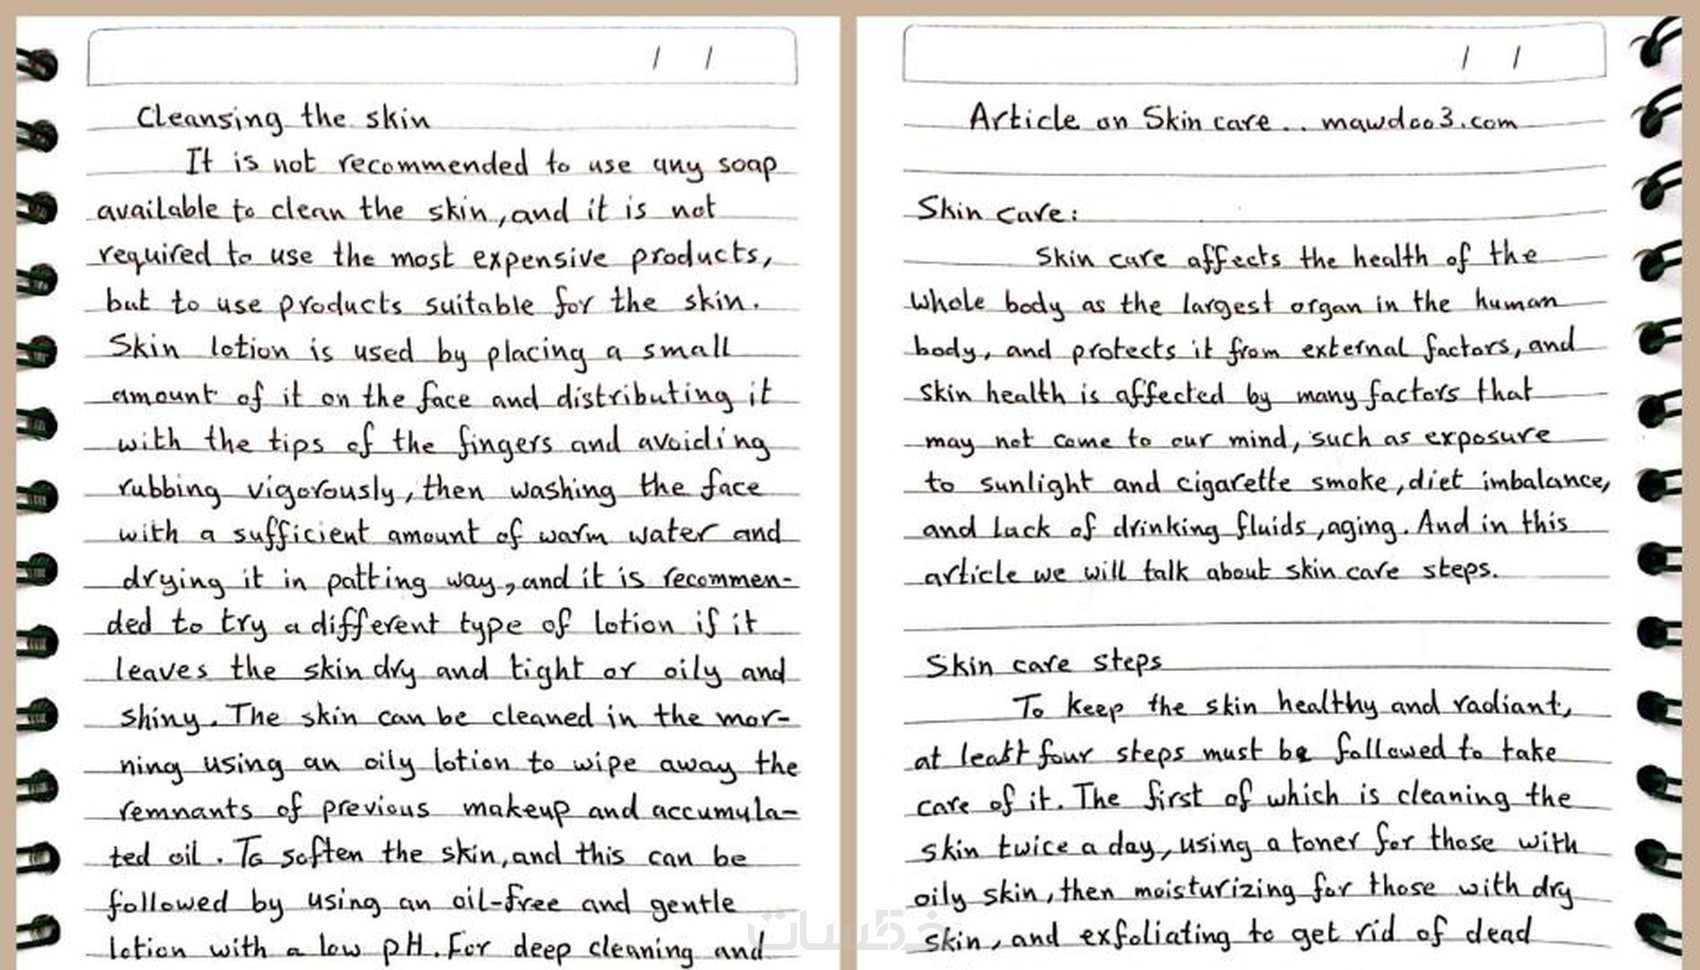 / /
Cleansing the skin
It is not recommended to use any soap
available to clean the skin, and it is not
required to use the most expensive products,
but to use products suitable for the skin.
Skin lotion is used by placing a small
amount of it on the face and distributing it
with the tips of the fingers and avoiding
rubbing vigorously, then washing the face
with a sufficient amount of warm water and
drying it in patting way, and it is recommen-
ded to try a different type of lotion if it
leaves the skin dry and tight or oily and
shiny. The skin can be cleaned in the mor-
ning using an oily lotion to wipe away the
remnants of previous makeup and accumula-
ted oil. To soften the skin, and this can be
followed by using an oil-free and gentle
lotion with a low pH. For deep cleaning and
/ /
Article on Skin care... mawdoo3.com
Skin care:
Skin care affects the health of the
whole body as the largest organ in the human
body, and protects it from external factors, and
skin health is affected by many factors that
may not come to our mind, such as exposure
to sunlight and cigarette smoke, diet imbalance,
and lack of drinking fluids, aging. And in this
article we will talk about skin care steps.
Skin care steps
To keep the skin healthy and radiant,
at least four steps must be followed to take
care of it. The first of which is cleaning the
skin twice a day, using a toner for those with
oily skin, then moisturizing for those with dry
skin, and exfoliating to get rid of dead
خمسات